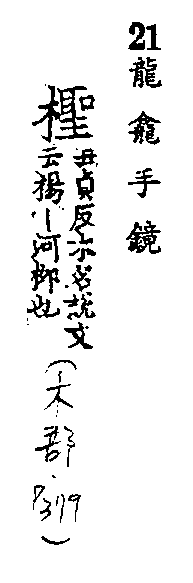 21 龍龕手鏡
檉
丑貞反木名說文
云楊〡河柳也
(木部. P379)